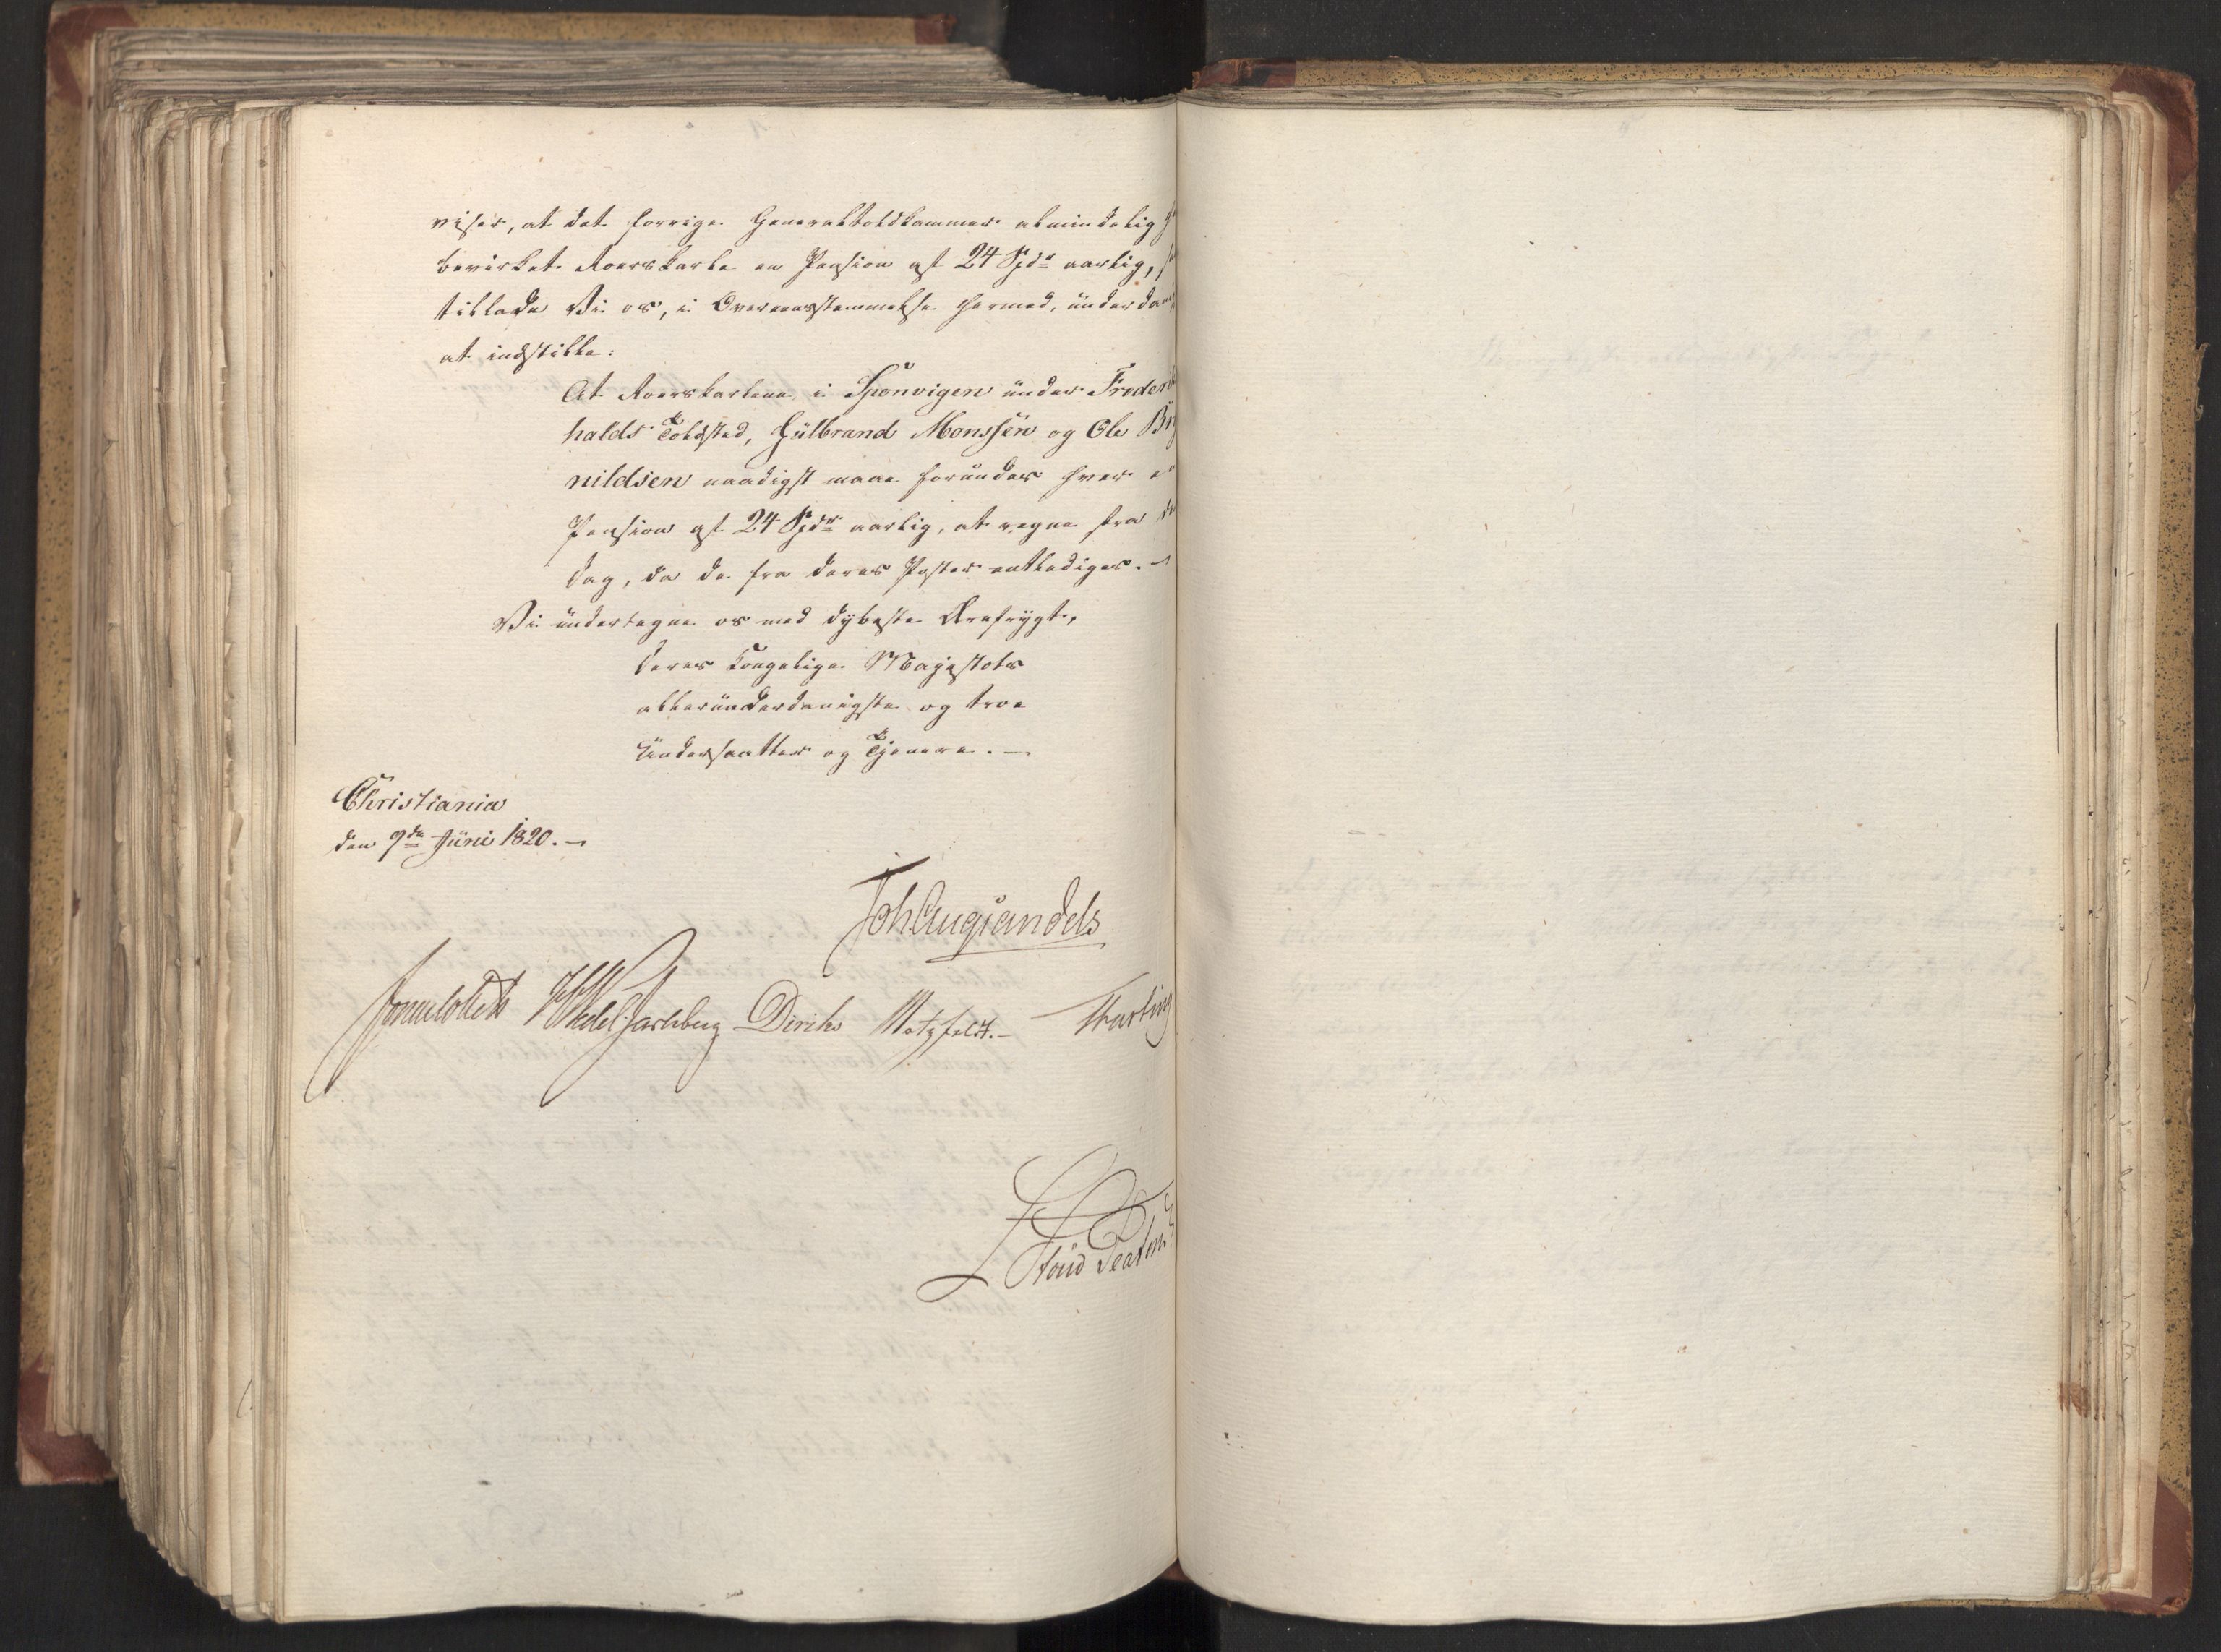 viser, at det forrige Generaltoldkammer almindelig
bevirket Roerskarle en Pension af 24 Spdr aarlig,
tillade Vi os, i Overeensstemmelse hermed, underdanig
at indstille:
At Roerskarlene i Sponvigen under Frederik
halds Toldsted, Gulbrand Monssen og Ole Bry
nildsen naadigst maae forundes hver en
Pension af 24 Spdr aarlig, at regne fra den
Dag, da de fra deres Poster entlediges. –
Vi undertegne os med dybeste Ærefrygt,
Deres Kongelige Majestæts
allerunderdanigste og troe
Undersaatter og Tjenere. –
Christiania
den 9de Juni 1820. –
Joh Aug Sandels
Sommerhielm HWedel Jarlsberg Diriks Motzfeldt. – Krafting